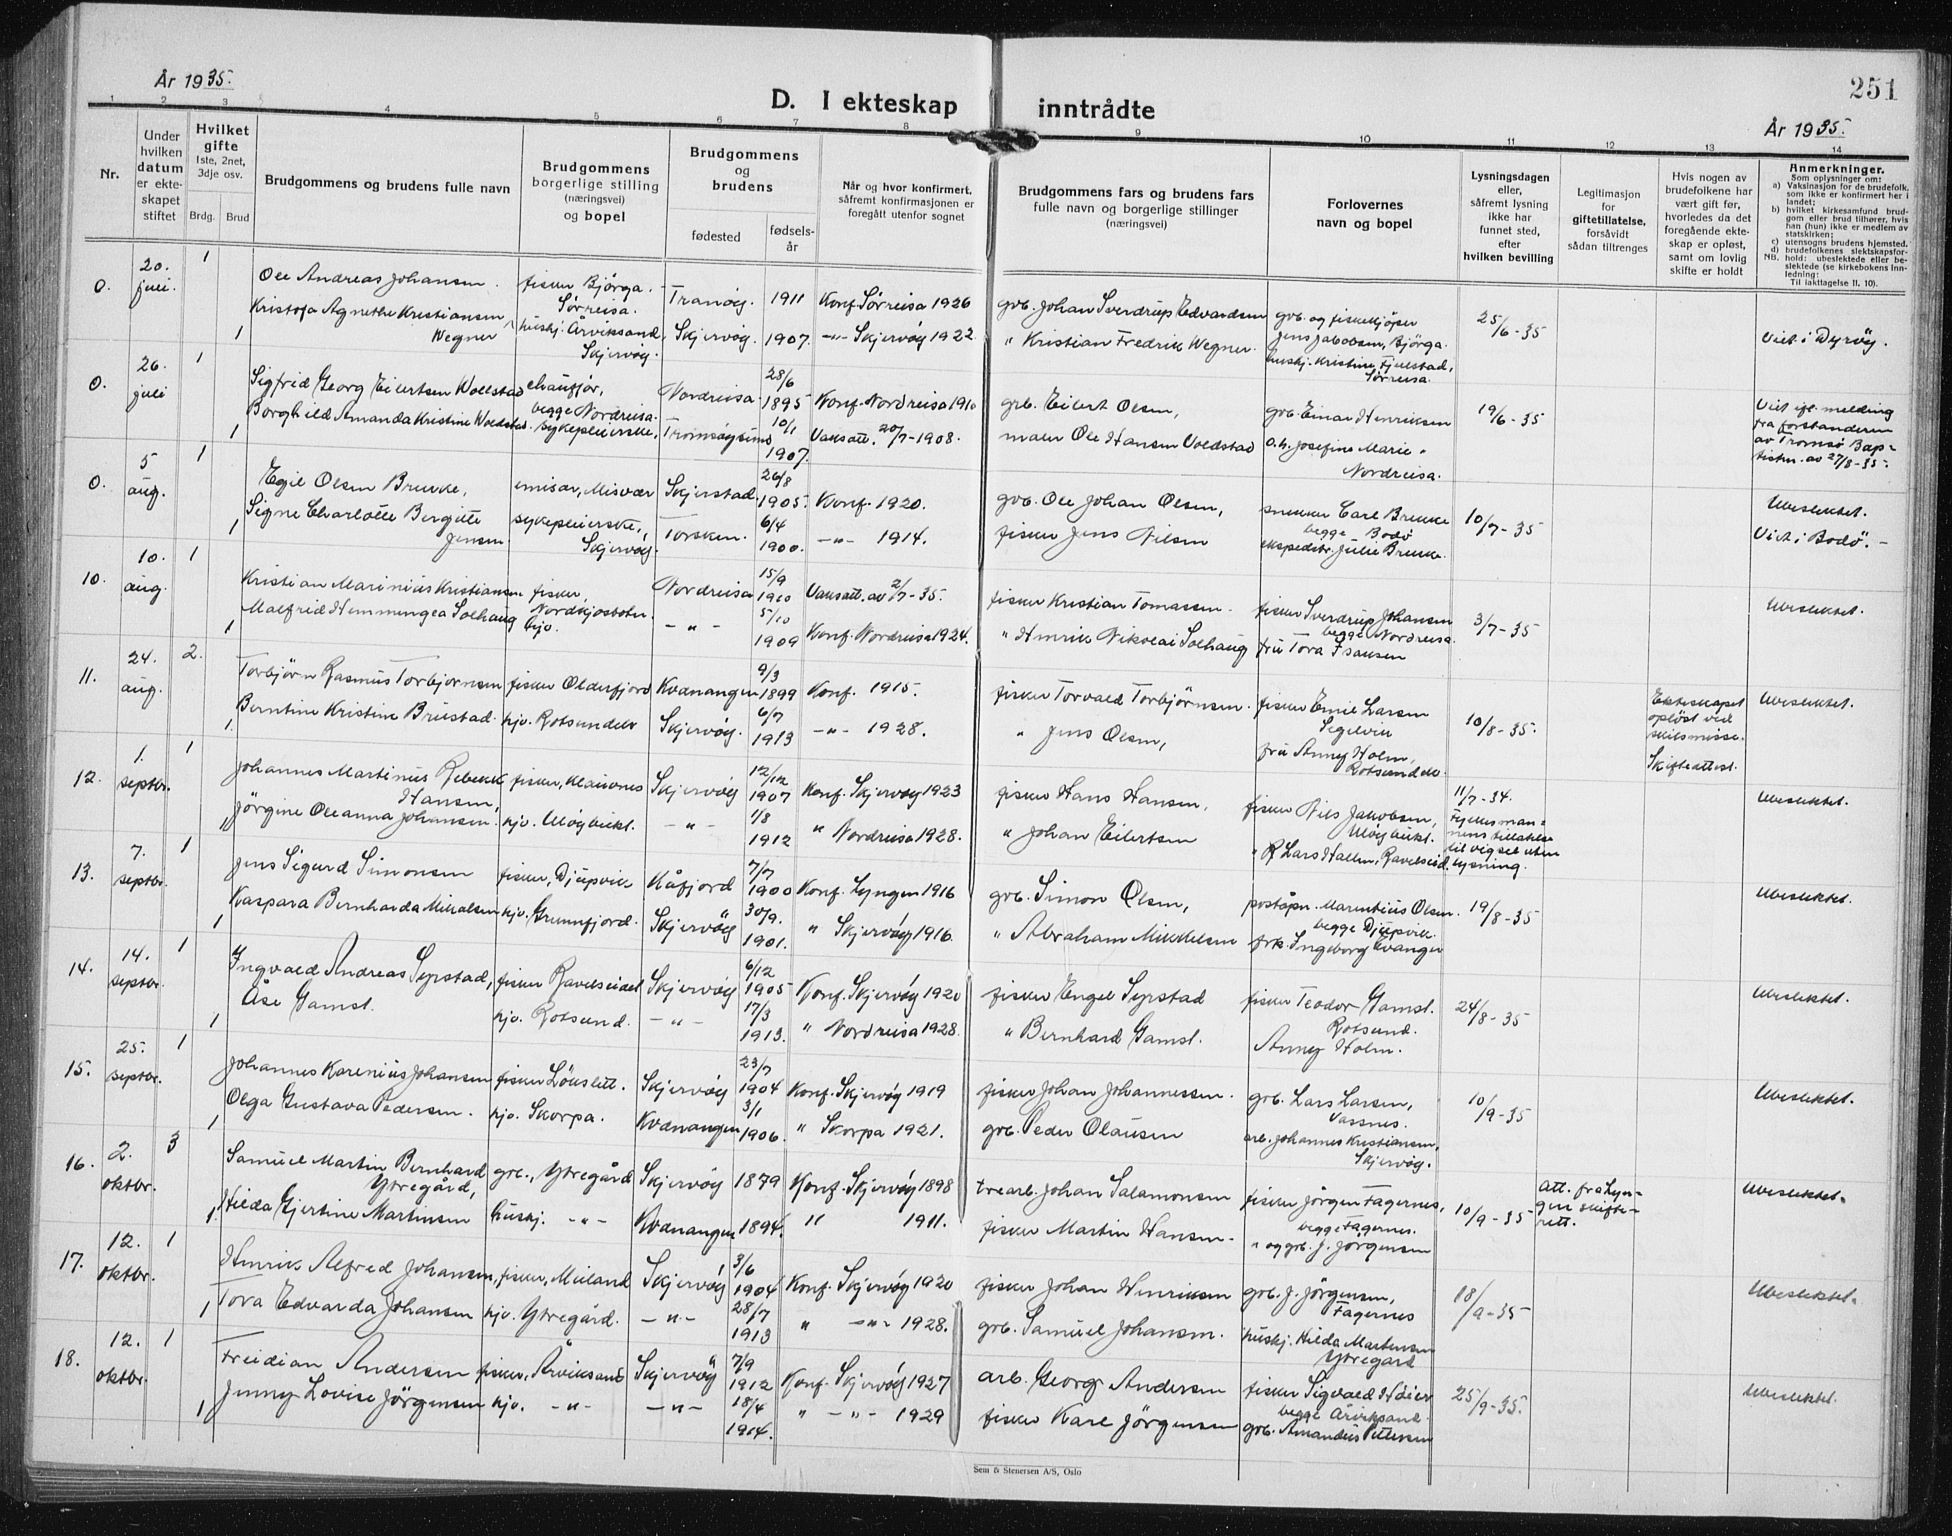 År 1935.
D. I ekteskap inntrådte
251
År 1935.
1 2 3 4 5 6 7 8 9 10 11 12 13 14
Nr.
Under hvilken datum er ekteskapet stiftet
Hvilket gifte
1ste, 2net, 3dje osv.
Brdg. Brud
Brudgommens og brudens fulle navn
Brudgommens borgerlige stilling (næringsvei) og bopel
Brudgommens og brudens
fødested
fødselsår
Når og hvor konfirmert, såfremt konfirmasjonen er foregått utenfor sognet
Brudgommens fars og brudens fars fulle navn og borgerlige stillinger (næringsvei)
Forlovernes navn og bopel
Lysningsdagen eller, såfremt lysning ikke har funnet sted, efter hvilken bevilling
Legitimasjon for giftetillatelse, forsåvidt sådan tiltrenges
Hvis nogen av brudefolkene har vært gift før, hvorledes da det foregående ekteskap er opløst, samt om lovlig skifte er holdt
Anmerkninger.
Som oplysninger om:
a) Vaksinasjon for de brudefolk, som ikke er konfirmert her i landet;
b) hvilket kirkesamfund brudgom eller brud tilhører, hvis han (hun) ikke er medlem av statskirken;
c) utensogns brudens hjemsted.
d) brudefolkenes slektskapsforhold: ubeslektede eller beslektede (se kirkebokens innledning:
NB. Til iakttagelse II. 10).
0. 20. juli. 1 Ole Andreas Johansen. fisker Bjørga. Sørreisa. Tranøy. 1911 Konf. Sørreisa 1926 grb. Johan Sverdrup Edvardsen grb. og fiskekjøper Jens Jakobsen, Bjørga. 25/6-35 Viet i Dyrøy.
1 Kristofa Agnethe Kristiansen Wegner huskj. Årviksand, Skjervøy. Skjervøy. 1907. -"- Skjervøy 1922 " Kristian Fredrik Wegner. huskj. Kristine Fjellstad, Sørreisa.
0. 26. juli 1 Sigfrid Georg Eilertsen Wollstad chauffør, begge Nordreisa. Nordreisa 28/6 1895 Konf. Nordreisa 1910 grb. Eilert Olsen, grb. Einar Henriksen 19/6-35 Viet ifl. melding fra forstanderen av Tromsø Baptistm. av 27/8-35.
1 Borghild Amanda Kristine Woldstad. sykepleierske, Tromsøysund 10/1 1907. Vaksatt. 20/7-1908. maler Ole Hansen Voldstad o.h. Josefine Marie " Nordreisa.
0. 5 aug. 1 Egil Olsen Brekke, emisær, Misvær Skjerstad 26/8 1905. Konf. 1920. grb. Ole Johan Olsen, snekker Carl Brekke begge Bodø 10/7-35 Ubeslektet.
1 Signe Charlotte Bergitte Jensen sykepleierske, Skjervøy. Torsken. 6/4 1900. -"- 1914. fisker Jens Nilsen ekspeditr. Julie Brekke. Viet i Bodø.-
10. 10. aug. 1 Kristian Marinius Kristiansen fisker, Nordkjosbotn Nordreisa 15/9 1910 Vaksatt. av 2/7-35. fisker Kristian Tomassen. fisker Sverdrup Johansen begge Nordreisa 3/7-35 Ubeslektet.
1 Malfrid Hemmingea Solhaug hjv. -"- 5/10 1909 Konf. Nordreisa 1924. " Henrik Nikolai Solhaug fru Tora Isaksen
11. 24. aug. 2. Torbjørn Rasmus Torbjørnsen fisker Olderfjord Kvænangen 9/3 1899 Konf. 1915. fisker Torvald Torbjørnsen. fisker Emil Larsen Segelvik 10/8-35. Ekteskapet opløst ved skilsmisse. Skifteattest. Ubeslektet.
1. Berntine Kristine Brustad. hjv. Rotsundelv Skjervøy. 6/7 1913 -"- 1928. " Jens Olsen, fru Anny Holm, Rotsundelv.
12. 1. septbr. 1 Johannes Martinus Rebekk Hansen, fisker, Klauvnes Skjervøy 12/12 1907 Konf. Skjervøy 1923 fisker Hans Hansen, fisker Nils Jakobsen, Uløybukt. 11/7-34. Fylkesmannens tillatelse til vigsel uten lysning. Ubeslektet.
" Jørgine Oleanna Johansen. hjv. Uløybukt. -"- 1/8 1912 " Nordreisa 1928. " Johan Eilertsen " R. Lars Hallen, Ravelseid.
13. 7. septbr. 1 Jens Sigurd Simonsen fisker, Djupvik Kåfjord 7/7 1900 Konf. Lyngen 1916 grb. Simon Olsen, poståpn. Marentius Olsen. begge Djupvik. 19/8-35 Ubeslektet.
1 Kaspara Bernharda Mikalsen hjv. Grunnfjord. Skjervøy 30/9. 1901. " Skjervøy 1916. " Abraham Mikkelsen frk. Ingeborg Evanger
14. 14. septbr. 1 Ingvald Andreas Syrstad, fisker Ravelseidet Skjervøy 6/12 1905 Konf. Skjervøy 1920 fisker Engel Syrstad fisker Teodor Gamst. Rotsund. 24/8-35 Ubeslektet.
1 Åse Gamst. hjv. Rotsund. -"- 17/3 1913. " Nordreisa 1928. " Bernhard Gamst. Anny Holm.
15. 25. septbr. 1 Johannes Karenius Johansen fisker Lökslett. Skjervøy 23/7 1904 Konf. Skjervøy 1919 fisker Johan Johannessen. grb. Lars Larsen, Vassnes. 10/9-35 Ubeslektet.
1 Olga Gustava Pedersen. hjv. Skorpa. Kvænangen 3/1 1906. " Skorpa 1921. grb. Peder Olausen arb. Johannes Kristiansen, Skjervøy.
16. 2. oktbr. 3 Samuel Martin Bernhard Ytregård, grb., Ytregård Skjervøy 1879 Konf. Skjervøy 1898 trearb. Johan Salamonsen fisker Jørgen Fagernes, begge Fagernes. 10/9-35 Att. fra Lyngen skifterett. Ubeslektet.
1. Hilda Gjertine Martinsen huskj. -"- Kvænangen 1894. " 1911. fisker Martin Hansen. " og grb. J. Jørgensen
17. 12. oktbr. 1 Henrik Alfred Johansen, fisker, Meiland Skjervøy 3/6 1904 Konf. Skjervøy 1920 fisker Johan Henriksen grb. J. Jørgensen, Fagernes 18/9-35 Ubeslektet.
1 Tora Edvarda Johansen hjv. Ytregård. -"- 28/7 1913 " -"- 1928. grb. Samuel Johansen. huskj. Hilda Martinsen Ytregård
18. 12. oktbr. 1 Freidian Andersen fisker, Årviksand Skjervøy 7/9 1912 Konf. Skjervøy 1927 arb. Georg Andersen fisker Sigvald Høier begge Årviksand. 25/9-35. Ubeslektet.
1 Jenny Lovise Jörgensen hjv. -"- -"- 18/4 1914. " -"- 1929 fisker Karl Jörgensen grb. Amandus Pettersen
Sem & Stenersen A/S, Oslo